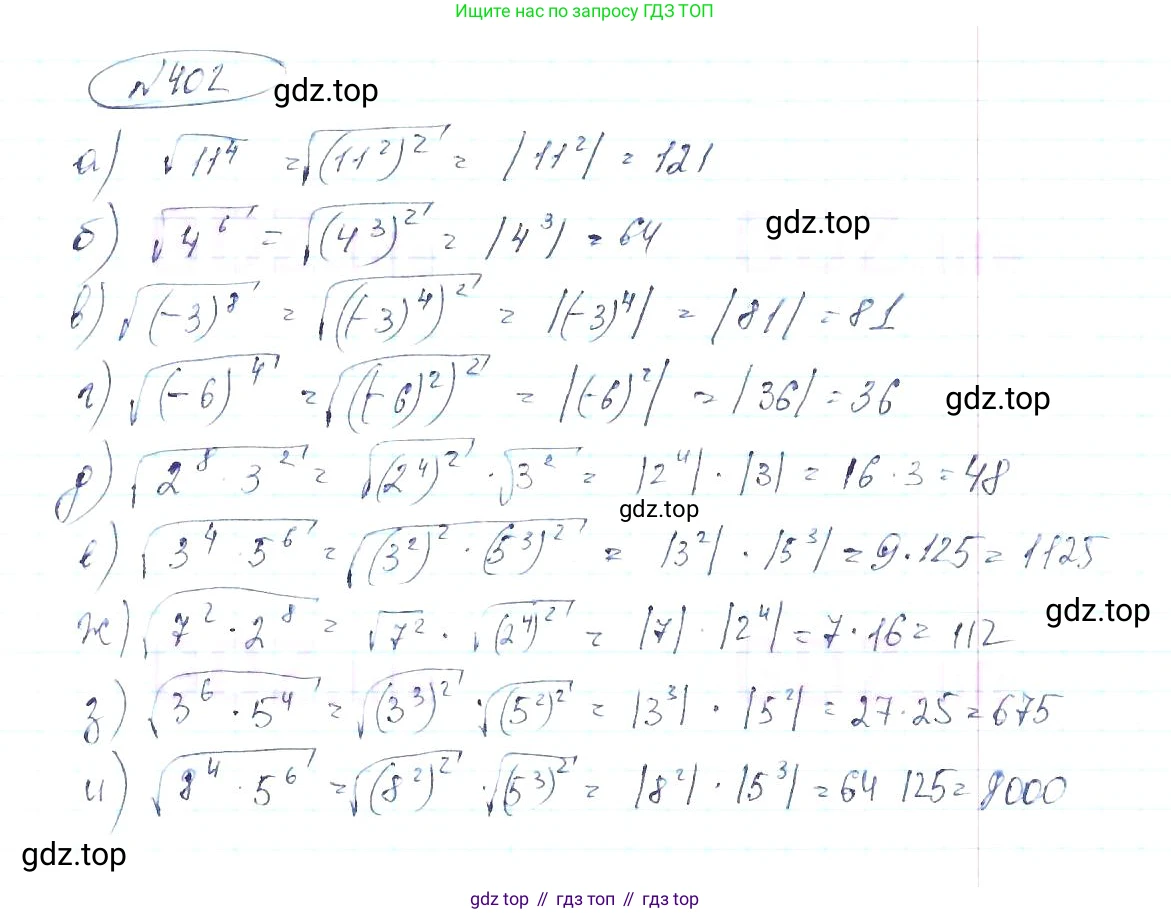 Ищите нас по запросу ГДЗ ТОП
№402
gdz.top
а) √11⁴ = √(11²)² = |11²| = 121
б) √4⁶ = √(4³)² = |4³| = 64
gdz.top
в) √(-3)⁸ = √((-3)⁴)² = |(-3)⁴| = |81| = 81
г) √(-6)⁴ = √((-6)²)² = |(-6)²| = |36| = 36
gdz.top
д) √2⁸ · 3² = √(2⁴)² · √3² = |2⁴| · |3| = 16 · 3 = 48
gdz.top
е) √3⁴ · 5⁶ = √(3²)² · (5³)² = |3²| · |5³| = 9 · 125 = 1125
ж) √7² · 2⁸ = √7² · √(2⁴)² = |7| · |2⁴| = 7 · 16 = 112
gdz.top
з) √3⁶ · 5⁴ = √(3³)² · √(5²)² = |3³| · |5²| = 27 · 25 = 675
и) √8⁴ · 5⁶ = √(8²)² · √(5³)² = |8²| · |5³| = 64 125 = 8000
gdz.top
gdz top // гдз топ // гдз top